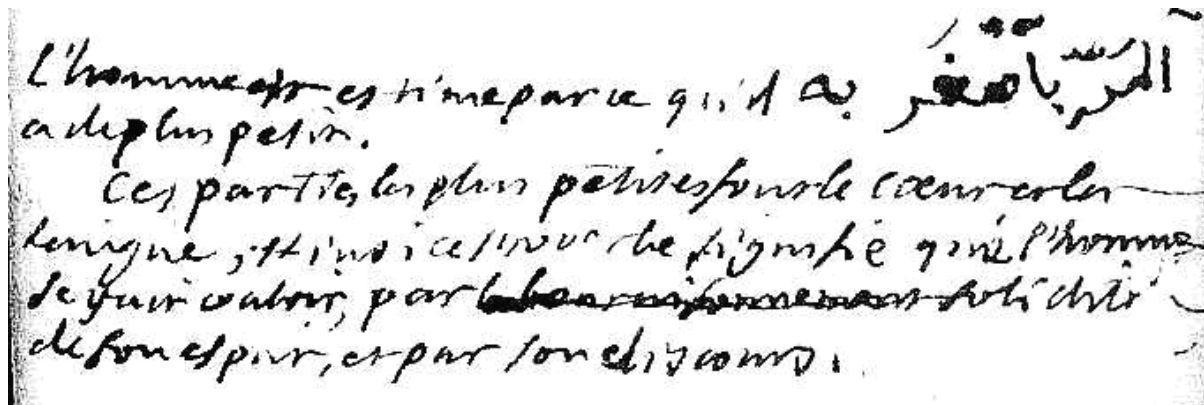 L'homme est estime par ce qu'il المرء باصغريه
a de plus petit.
Ces parties les plus petites sont le cœur et la
langue, et ainsi ce proverbe signifie que l'homme
se fait valoir, par la solidité
de son esprit, et par son discours.